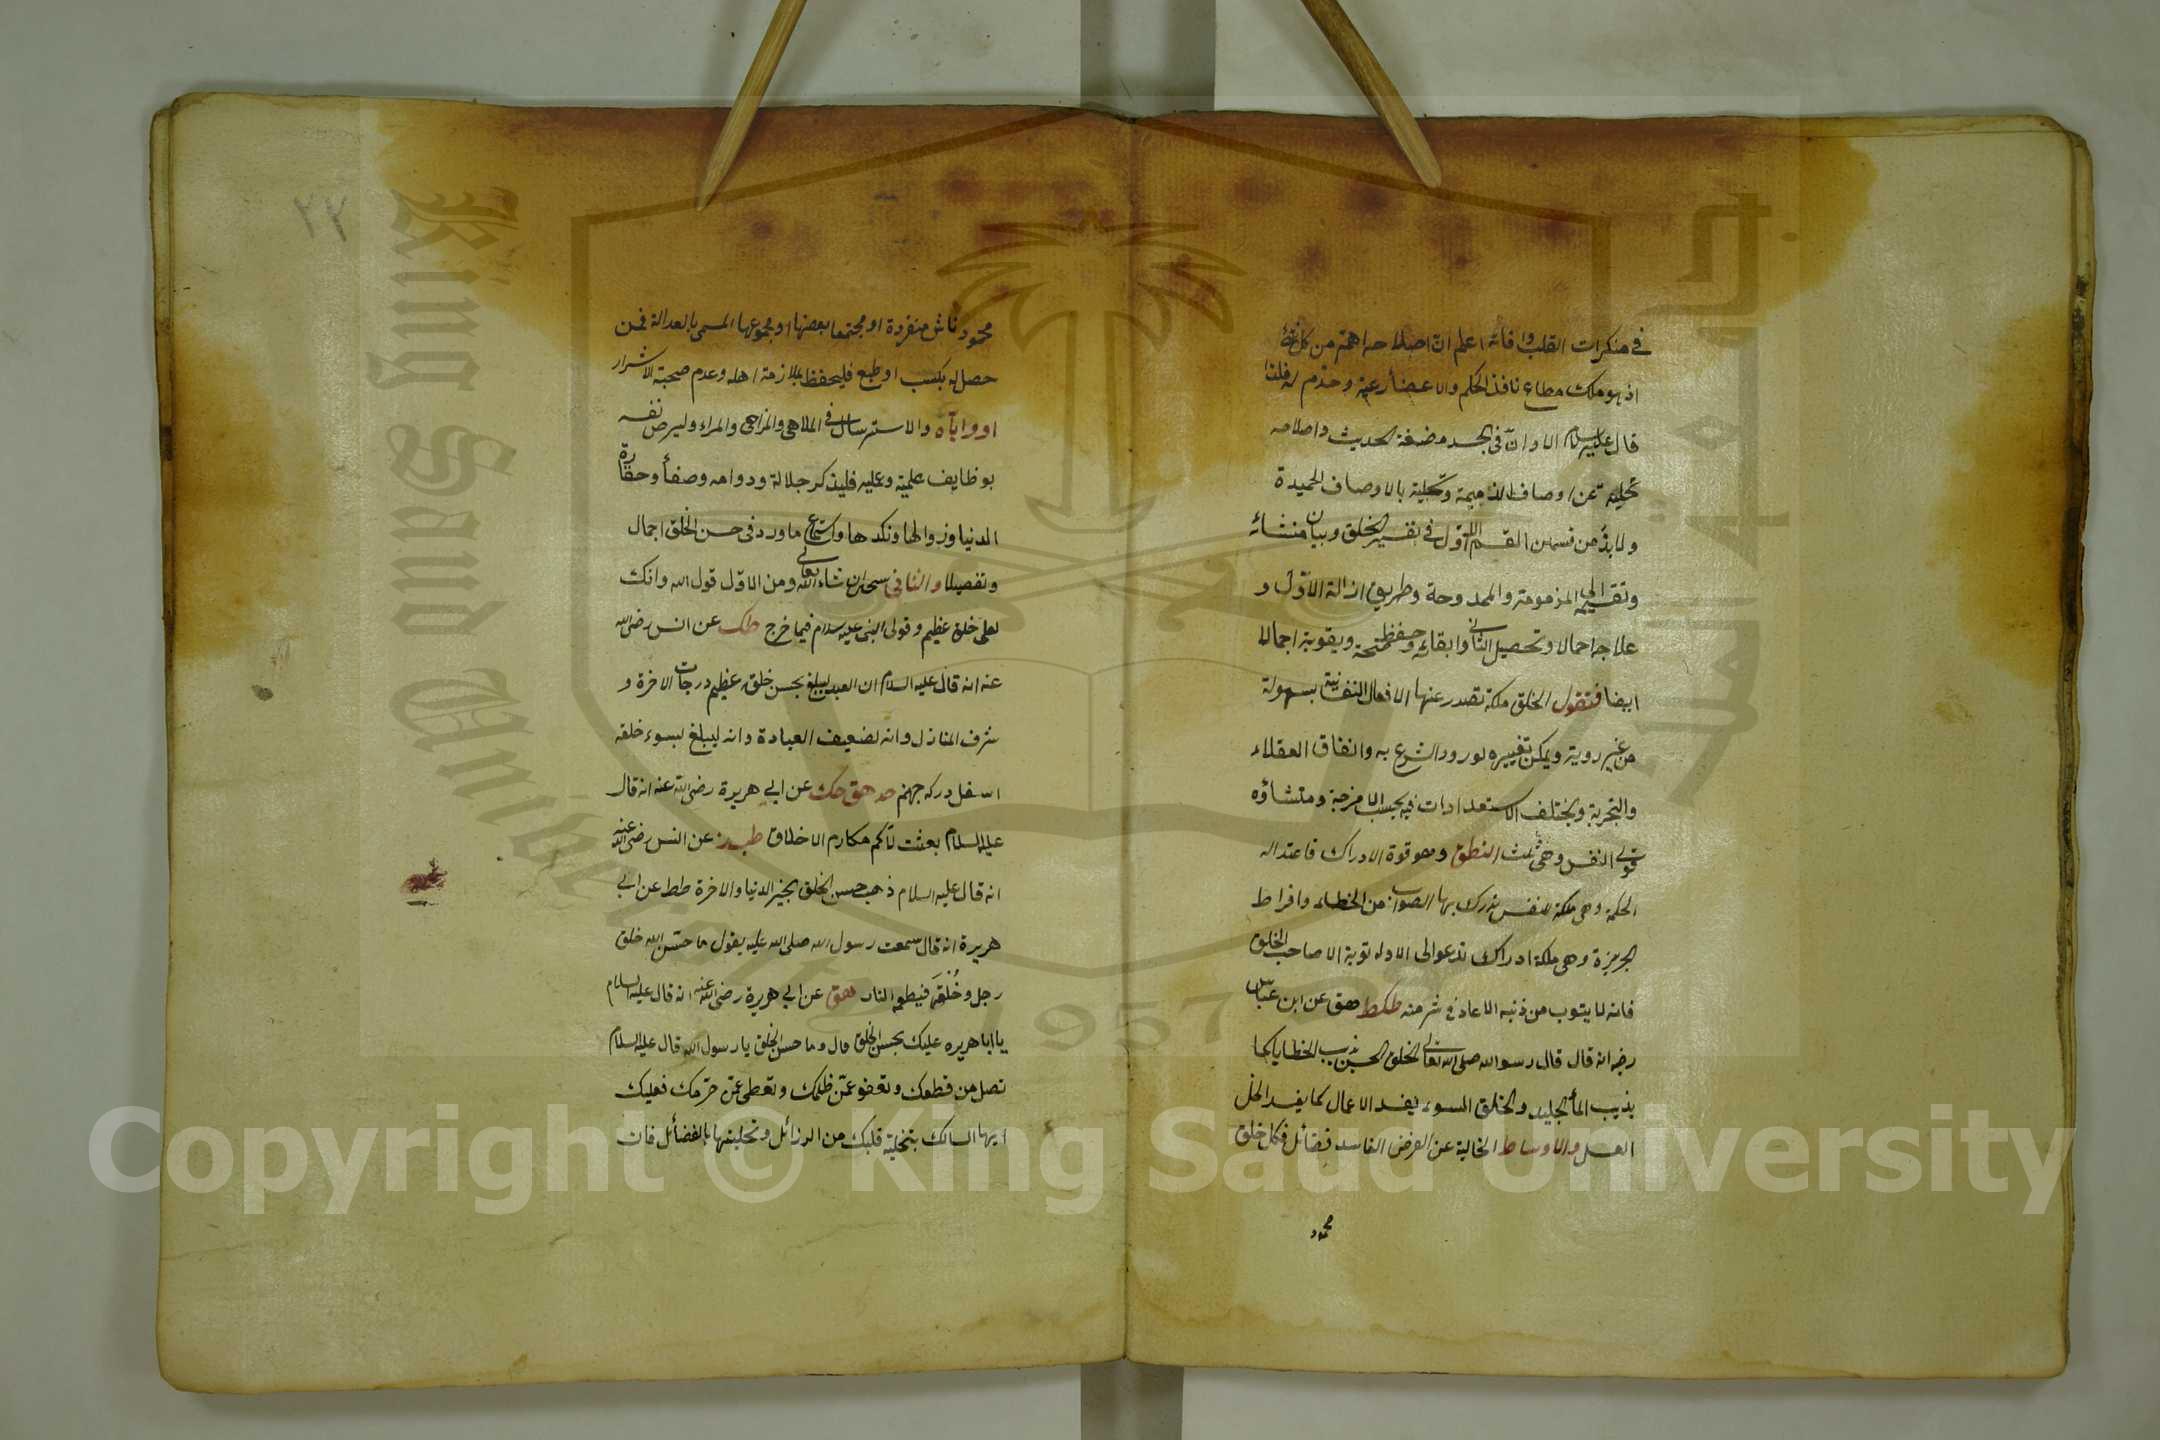 في منكرات القلب وافاته اعلم ان اصلاحه اهم من كل شئ
اذ هو ملك مطاع نافذ الحكم والاعضأ رعية وخدم له فلذا
قال عليه السلام الا وان في الجسد مضغة الحديث واصلاحه
تخليته عن اوصاف الذميمة وتحلية بالاوصاف الحميدة
ولابد من قسمين القسم الاول في تفسير الخلق وبيان منشائه
وتقسيمه الى المذمومة والممدوحة وطريق ازالة الاول و
علاجه اجمالا وتحصيل الثاني وابقائه وحفظ صحته وتقويته اجمالا
ايضا فنقول الخلق ملكة تصدر عنها الافعال النفسانية بسهولة
من غير روية ويمكن تغييره لورود الشرع به واتفاق العقلاء
والتجربة ويختلف الاستعدادات فيه بحسب الامزجة ومنشاؤه
قوى النفس وهي ثلث النطق وهو قوة الادراك فاعتداله
الحكمة وهي ملكة للنفس يدرك بها الصواب من الخطاء وافراط
الجربزة وهي ملكة ادراك تدعو الى الاوله توبة الا صاحب الخلق
فانه لا يتوب من ذنبه الا عاد في شر منه طكط هق عن ابن عباس
رضه انه قال قال رسول الله صلى الله تعالى الخلق الحسن يذيب الخطايا كما
يذيب المأ الجليد والخلق السوء يفسد الاعمال كما يفسد الخل
العسل والاوساط الخالية عن الغرض الفاسد فضائل فكل خلق
محمود
٢٢
محمود ناش منفردة او مجتمعا بعضها او مجموعها المسمى بالعدالة فمن
حصل له بكسب او طبع فليحفظ بملازمة اهله وعدم صحبة الاشرار
او واياه والاسترسال في الملاهي والمزاحي والمراء وليرض نفسه
بوظايف علمية وعمليه فليذكر جلالة ودوامه وصفأ وحقارة
الدنيا وزوالها ونكدها واستماع ما ورد في حسن الخلق اجمال
وتفصيلا والثاني سيجئ ان شاء الله تعالى ومن الاول قول الله وانك
لعلى خلق عظيم وقول النبي عليه سلام فيما خرج طك عن انس رضى الله
عنه انه قال عليه السلام ان العبد ليبلغ بحسن خلقه عظيم درجات الاخرة و
شرف المنازل وانه لضعيف العبادة وانه ليبلغ بسوء خلقه
اسفل دركه جهنم حد هق حك عن ابي هريرة رضى الله عنه انه قال
عليه السلام بعثت لاتمم مكارم الاخلاق طبز عن انس رضى الله عنه
انه قال عليه السلام ذهب حسن الخلق بخير الدنيا والاخرة طط عن ابي
هريرة انه قال سمعت رسول الله صلى الله عليه يقول ما حسن الله خلق
رجل وخُلقَه فيطعمه النار هق عن ابي هريرة رضى الله عنه انه قال عليه السلام
يا ابا هريره عليك بحسن الخلق قال وما حسن الخلق يا رسول الله قال عليه السلام
تصل من قطعك وتعفو عمن ظلمك وتعطى من حرمك فعليك
ايها السالك بتخلية قلبك من الرذائل وتحليتها بالفضائل فان
King Saud University
1957
Copyright © King Saud University